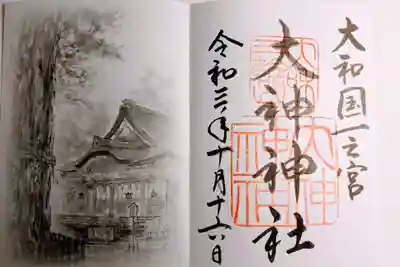 大和国一之宮
大神神社
令和三年十月十六日